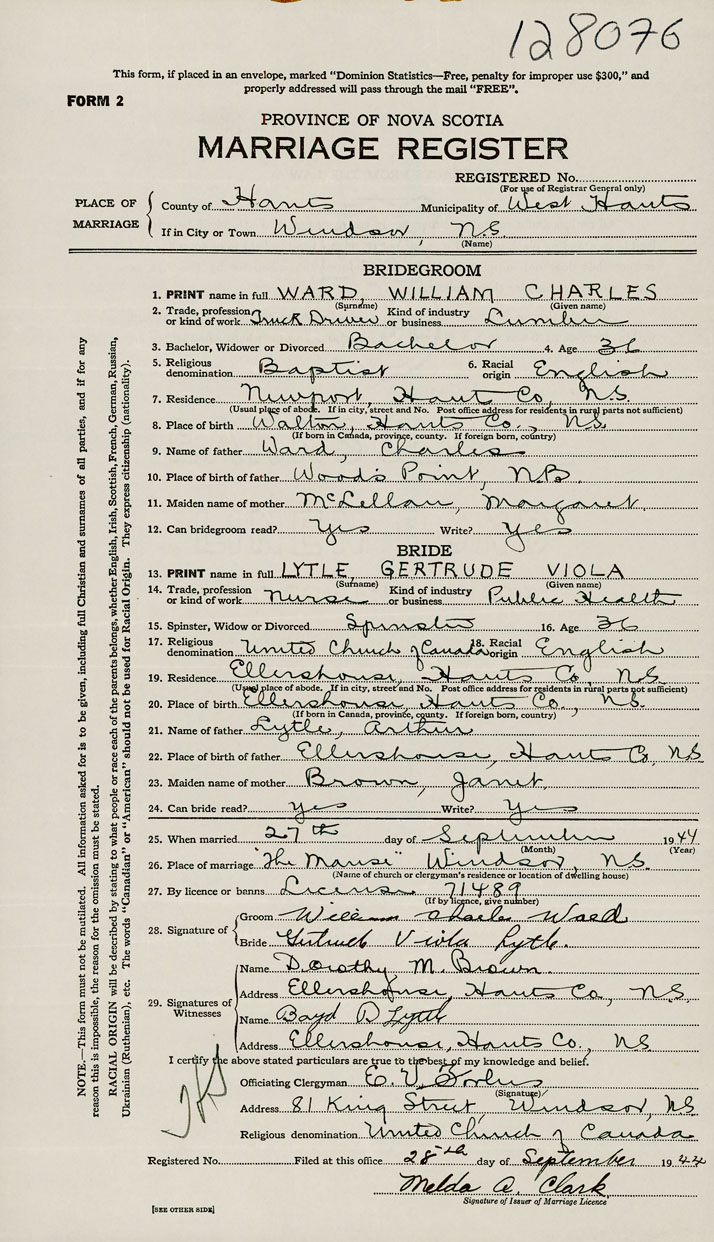 128076
This form, if placed in an envelope, marked "Dominion Statistics—Free, penalty for improper use $300," and
properly addressed will pass through the mail "FREE".
FORM 2
PROVINCE OF NOVA SCOTIA
MARRIAGE REGISTER
REGISTERED No.
(For use of Registrar General only)
PLACE OF MARRIAGE
County of Hants Municipality of West Hants
If in City or Town Windsor, N.S.
(Name)
BRIDEGROOM
1. PRINT name in full WARD, WILLIAM CHARLES
(Surname) (Given name)
2. Trade, profession or kind of work Truck Driver Kind of industry or business Lumber
3. Bachelor, Widower or Divorced Bachelor 4. Age 36
5. Religious denomination Baptist 6. Racial origin English
7. Residence Newport, Hants Co., N.S.
(Usual place of abode. If in city, street and No. Post office address for residents in rural parts not sufficient)
8. Place of birth Walton, Hants Co., N.S.
(If born in Canada, province, county. If foreign born, country)
9. Name of father Ward, Charles
10. Place of birth of father Wood's Point, N.B.
11. Maiden name of mother McLellan, Margaret.
12. Can bridegroom read? Yes Write? Yes
BRIDE
13. PRINT name in full LYTLE, GERTRUDE VIOLA
(Surname) (Given name)
14. Trade, profession or kind of work Nurse Kind of industry or business Public Health
15. Spinster, Widow or Divorced Spinster 16. Age 36
17. Religious denomination United Church of Canada 18. Racial origin English
19. Residence Ellershouse, Hants Co., N.S.
(Usual place of abode. If in city, street and No. Post office address for residents in rural parts not sufficient)
20. Place of birth Ellershouse, Hants Co., N.S.
(If born in Canada, province, county. If foreign born, country)
21. Name of father Lytle, Arthur
22. Place of birth of father Ellershouse, Hants Co, N.S.
23. Maiden name of mother Brown, Janet.
24. Can bride read? Yes Write? Yes
25. When married 27th day of September 1944
(Month) (Year)
26. Place of marriage "The Manse" Windsor, N.S.
(Name of church or clergyman's residence or location of dwelling house)
27. By licence or banns License 71489
(If by licence, give number)
28. Signature of
Groom William Charles Ward
Bride Gertrude Viola Lytle.
29. Signatures of Witnesses
Name Dorothy M. Brown.
Address Ellershouse, Hants Co., N.S.
Name Boyd D Lytle
Address Ellershouse, Hants Co., N.S
I certify the above stated particulars are true to the best of my knowledge and belief.
Officiating Clergyman E. V. Forbes
(Signature)
Address 81 King Street, Windsor, N.S.
Religious denomination United Church of Canada
Registered No. Filed at this office 28th day of September 1944
Melda A. Clark
Signature of Issuer of Marriage Licence
[SEE OTHER SIDE]
NOTE.—This form must not be mutilated. All information asked for is to be given, including full Christian and surnames of all parties, and if for any
reason this is impossible, the reason for the omission must be stated.
RACIAL ORIGIN will be described by stating to what people or race each of the parents belongs, whether English, Irish, Scottish, French, German, Russian,
Ukrainian (Ruthenian), etc. The words "Canadian" or "American" should not be used for Racial Origin. They express citizenship (nationality).